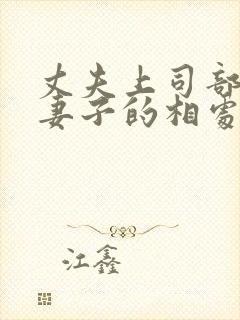 丈夫上司部
妻子的相处
江鑫